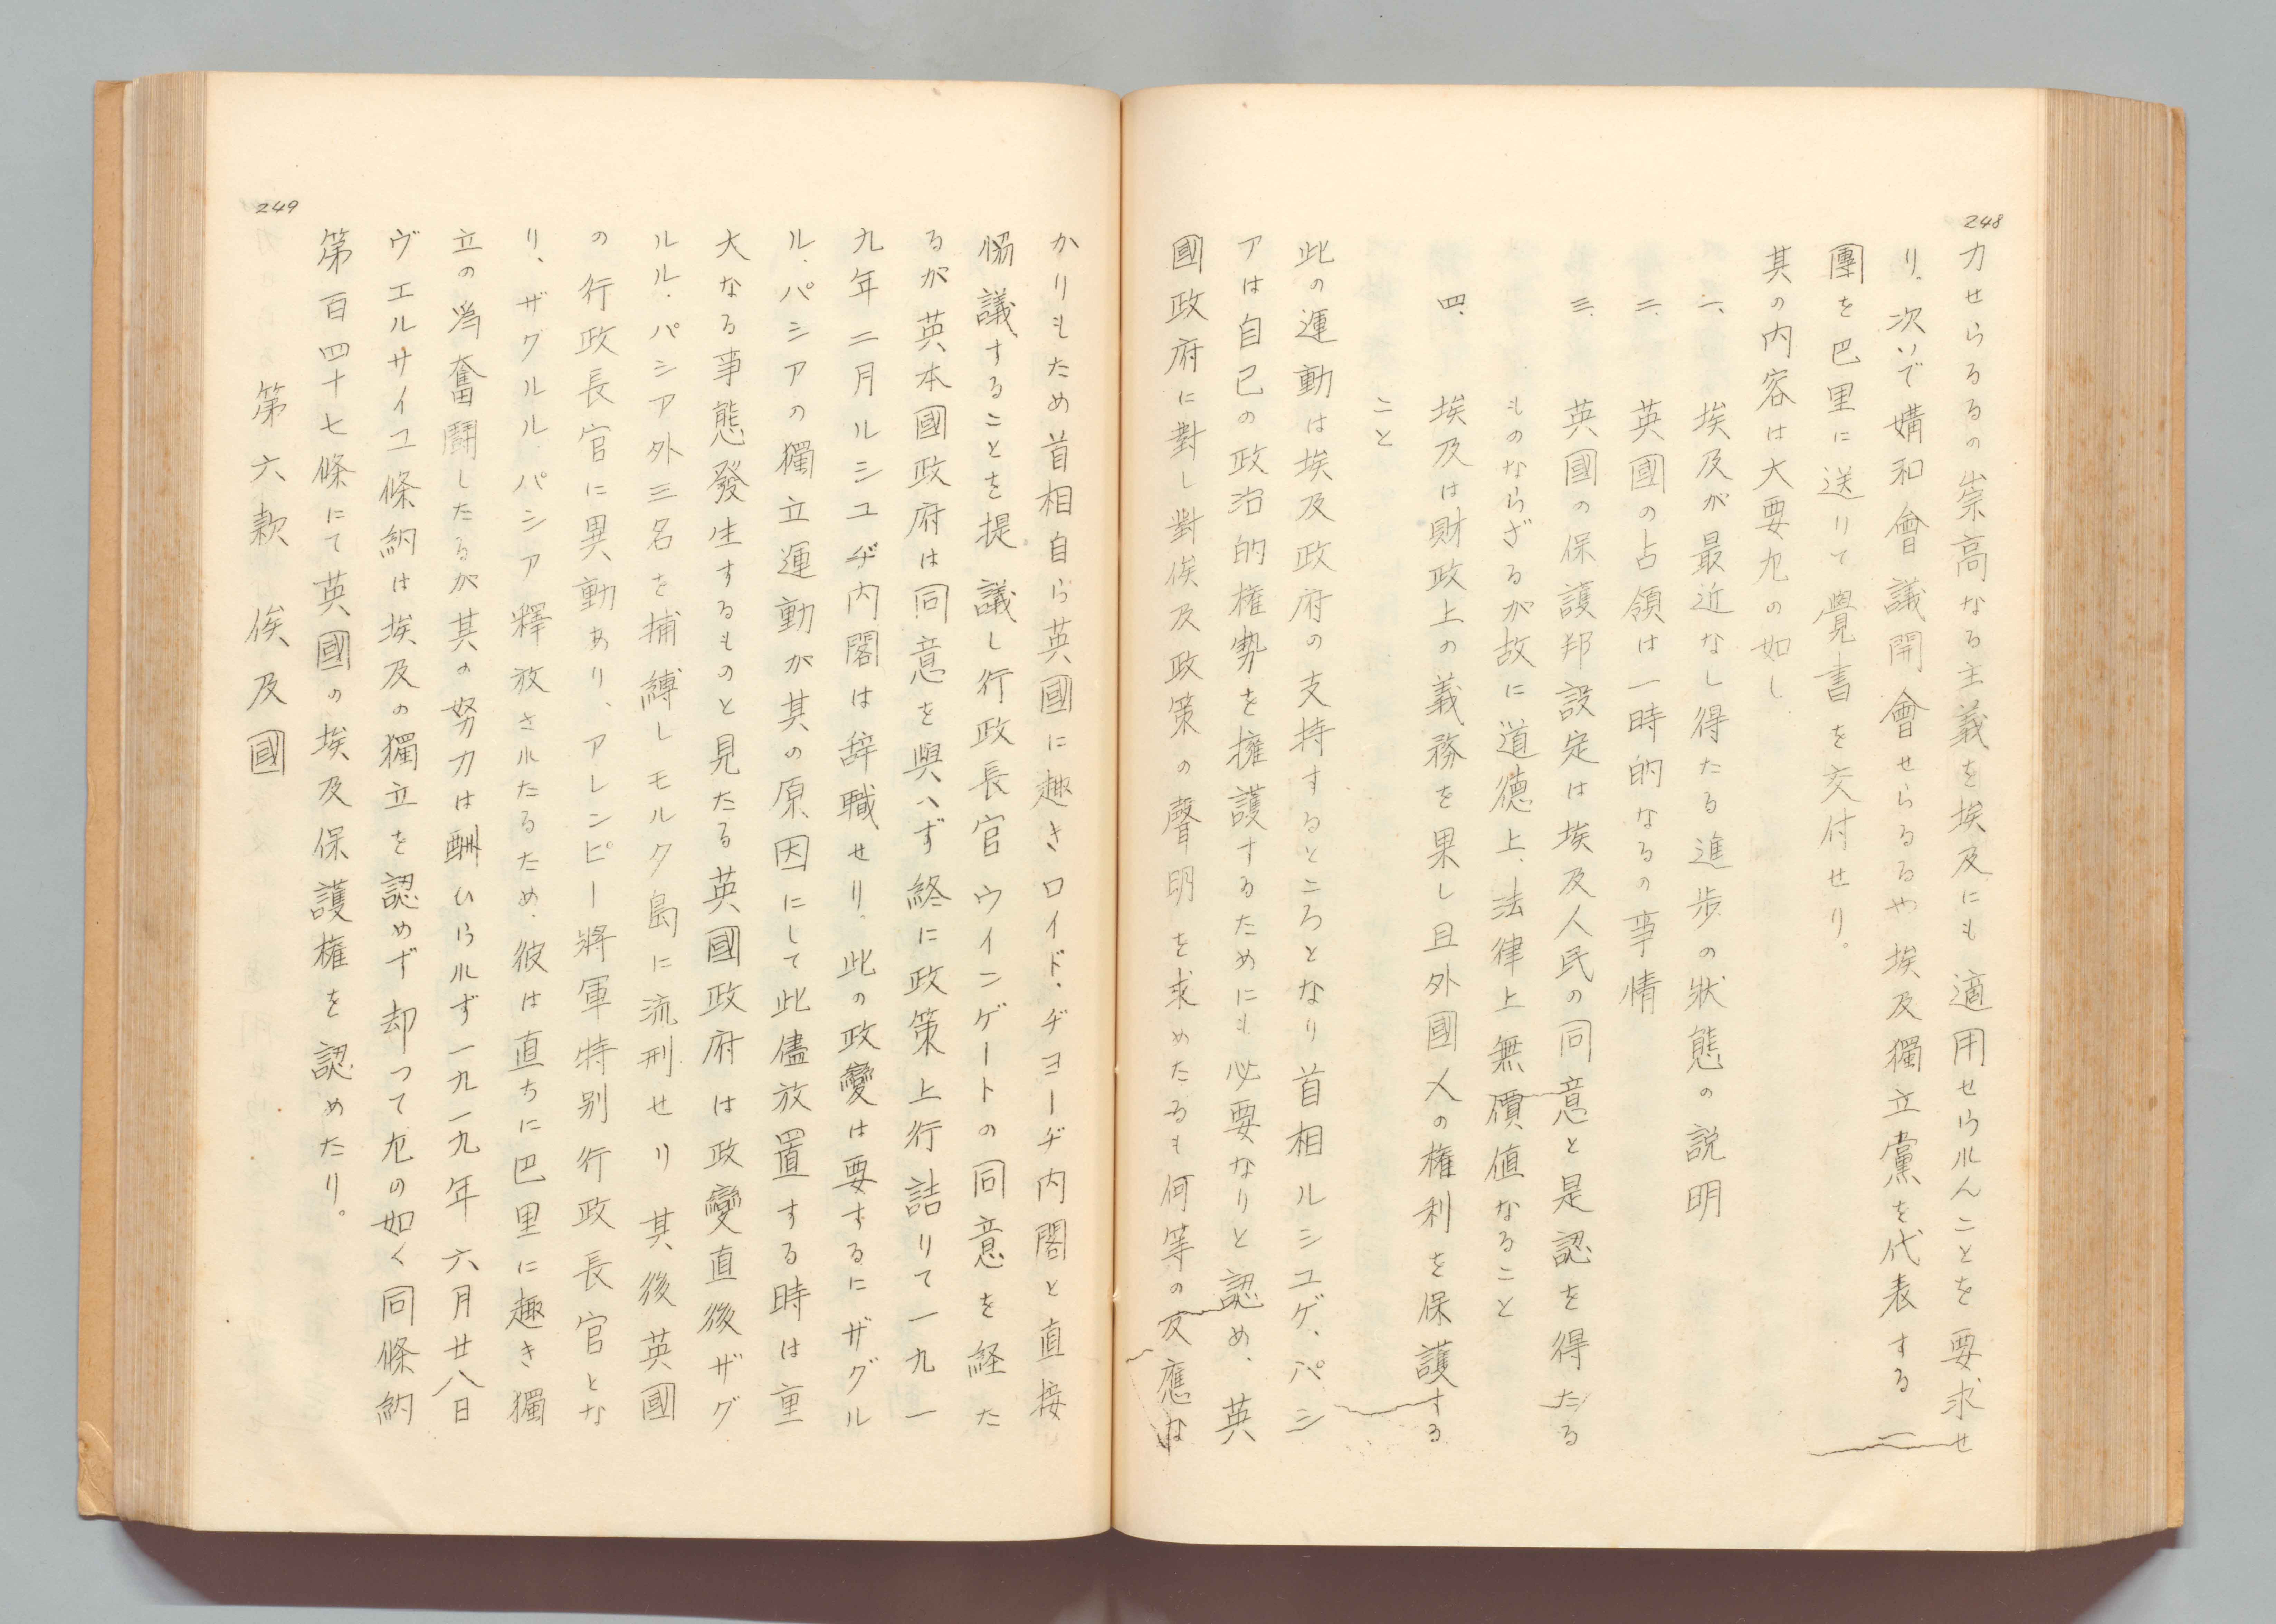 248
力せらるるの崇高なる主義を埃及にも適用せられんことを要求せ
り。次いで媾和會議開會せらるるや埃及獨立黨を代表する一
團を巴里に送りて覺書を交付せり。
其の内容は大要左の如し
一、埃及が最近なし得たる進歩の狀態の説明
二、英國の占領は一時的なるの事情
三、英國の保護邦設定は埃及人民の同意と是認を得たる
ものならざるが故に道德上、法律上無價値なること
四、埃及は財政上の義務を果し且外國人の権利を保護する
こと
此の運動は埃及政府の支持するところとなり首相ルシユゲ、パシ
アは自己の政治的権勢を擁護するためにも必要なりと認め、英
國政府に對し對埃及政策の聲明を求めたるも何等の反應な
249
かりもため首相自ら英國に趣きロイド・ヂヨーヂ内閣と直接
協議することを提議し行政長官ウインゲートの同意を経た
るが英本國政府は同意を與へず終に政策上行詰りて一九一
九年二月ルシユヂ内閣は辞職せり。此の政變は要するにザグル
ル・パシアの獨立運動が其の原因にして此儘放置する時は重
大なる事態發生するものと見たる英國政府は政變直後ザグ
ルル・パシア外三名を捕縛しモルタ島に流刑せり其後英國
の行政長官に異動あり、アレンピー將軍特別行政長官とな
り、ザグルル・パシア釋放されたるため、彼は直ちに巴里に趣き獨
立の爲奮鬪したるが其の努力は酬ひられず一九一九年六月廿八日
ヴエルサイユ條約は埃及の獨立を認めず却つて左の如く同條約
第百四十七條にて英國の埃及保護權を認めたり。
第六款　埃及國